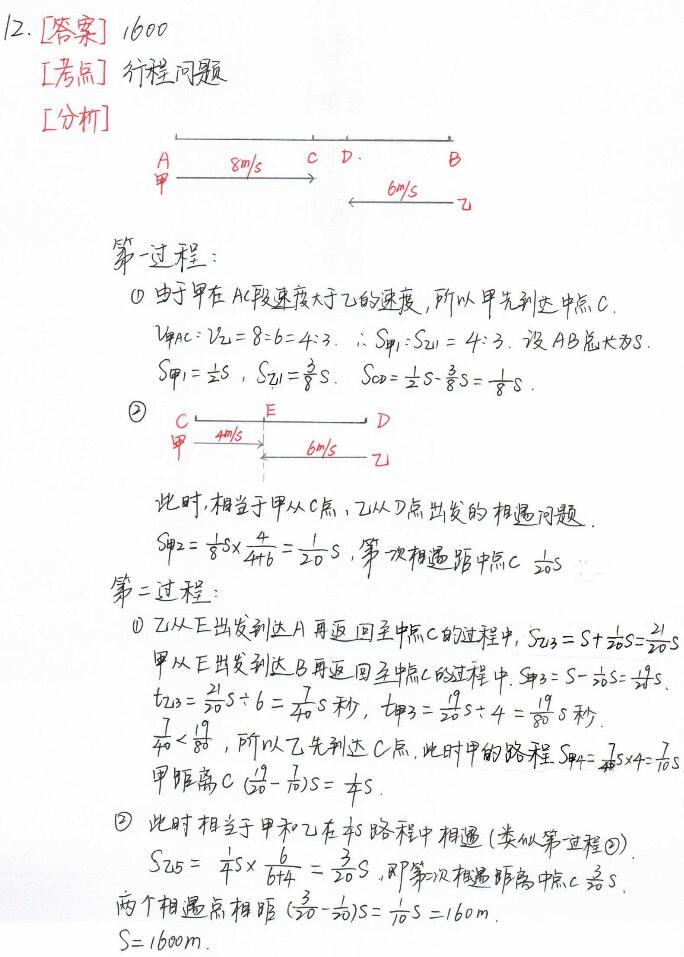 12. [答案] 1600
[考点] 行程问题
[分析]
A C D. B
甲 8m/s
6m/s 乙
第一过程：
① 由于甲在AC段速度大于乙的速度，所以甲先到达中点C.
V甲AC:V乙=8:6=4:3. ∴S甲1:S乙1=4:3. 设AB总长为S.
S甲1=1/2S，S乙1=3/8S. SCD=1/2S-3/8S=1/8S.
②
C E D
甲 4m/s 6m/s 乙
此时，相当于甲从C点，乙从D点出发的相遇问题.
S甲2=1/8S×4/(4+6)=1/20S，第一次相遇距中点C 1/20S
第二过程：
① 乙从E出发到达A再返回至中点C的过程中，S乙3=S+1/20S=21/20S
甲从E出发到达B再返回至中点C的过程中.S甲3=S-1/20S=19/20S.
t乙3=21/20S÷6=7/40S秒，t甲3=19/20S÷4=19/80S秒.
7/40<19/80，所以乙先到达C点，此时甲的路程S甲4=7/40S×4=7/10S
甲距离C (19/20-7/10)S=1/4S.
② 此时相当于甲和乙在1/4S路程中相遇(类似第一过程②).
S乙5=1/4S×6/(6+4)=3/20S，即第二次相遇距离中点C 3/20S.
两个相遇点相距(3/20-1/20)S=1/10S=160m.
S=1600m.